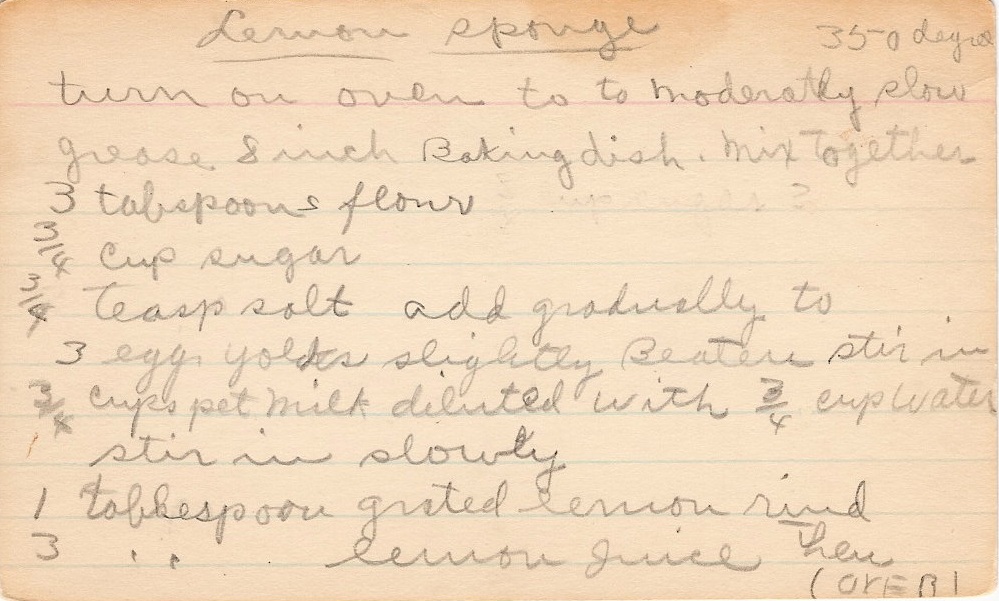 Lemon sponge 350 degree
turn on oven to to moderatly slow
grease 8 inch Baking dish. Mix Together
3 tabspoons flour
3/4 cup sugar
3/4 Teasp salt add gradually to
3 egg yolks slightly Beaten stir in
3/4 cups pet milk diluted with 3/4 cup Water
stir in slowly
1 tablespoon grated lemon rind
3 " lemon juice Then
(OVER)